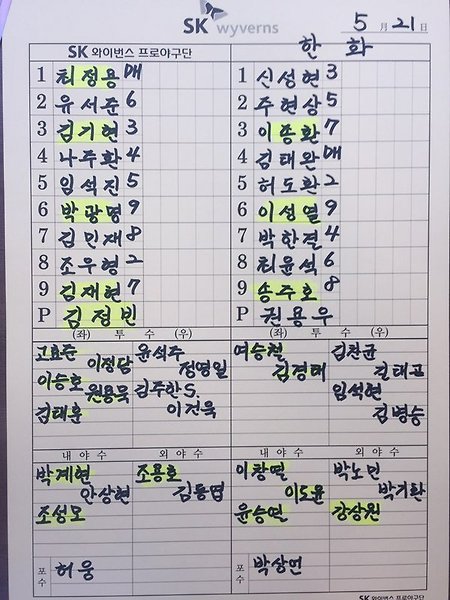 SK wyverns
5월 21일
SK 와이번스 프로야구단
한화
1 최정용 DH
2 유서준 6
3 김기현 3
4 나주환 4
5 임석진 5
6 박광명 9
7 김민재 8
8 조우형 2
9 김재현 7
P 김정빈
1 신성현 3
2 주현상 5
3 이종환 7
4 김태완 DH
5 허도환 2
6 이성열 9
7 박한결 4
8 최윤석 6
9 송주호 8
P 권용우
(좌) 투 수 (우)
이정담
이승호
원용묵
김태훈
윤석주
정영일
김주한 S.
이건욱
(좌) 투 수 (우)
여승철
김경태
김찬균
길태곤
임석현
김병승
내 야 수
외 야 수
박계현
안상현
조성모
조용호
김동엽
내 야 수
외 야 수
이창열
이도윤
윤승열
박노민
박기환
강상원
포수 허웅
포수 박상언
SK 와이번스 프로야구단